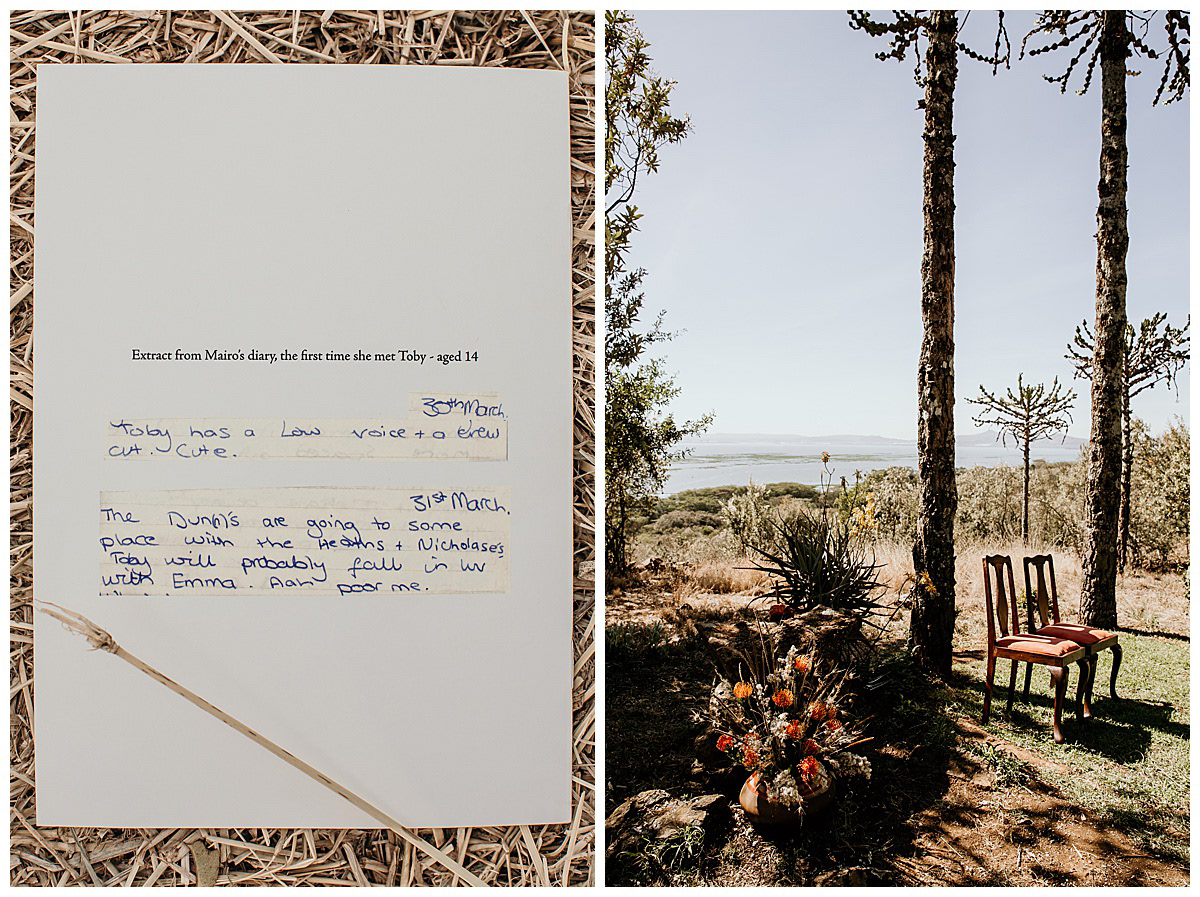 Extract from Mairo's diary, the first time she met Toby - aged 14
30th March.
Toby has a Low voice + a crew
cut. Cute.
31st March.
The Dunn's are going to some
place with the Heaths + Nicholase's
Toby will probably fall in luv
with Emma. Aah poor me.